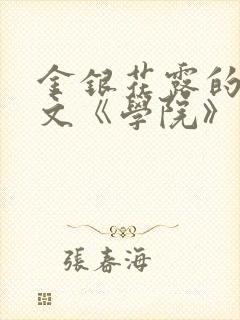 金銀花露的
文《學院》
張春海